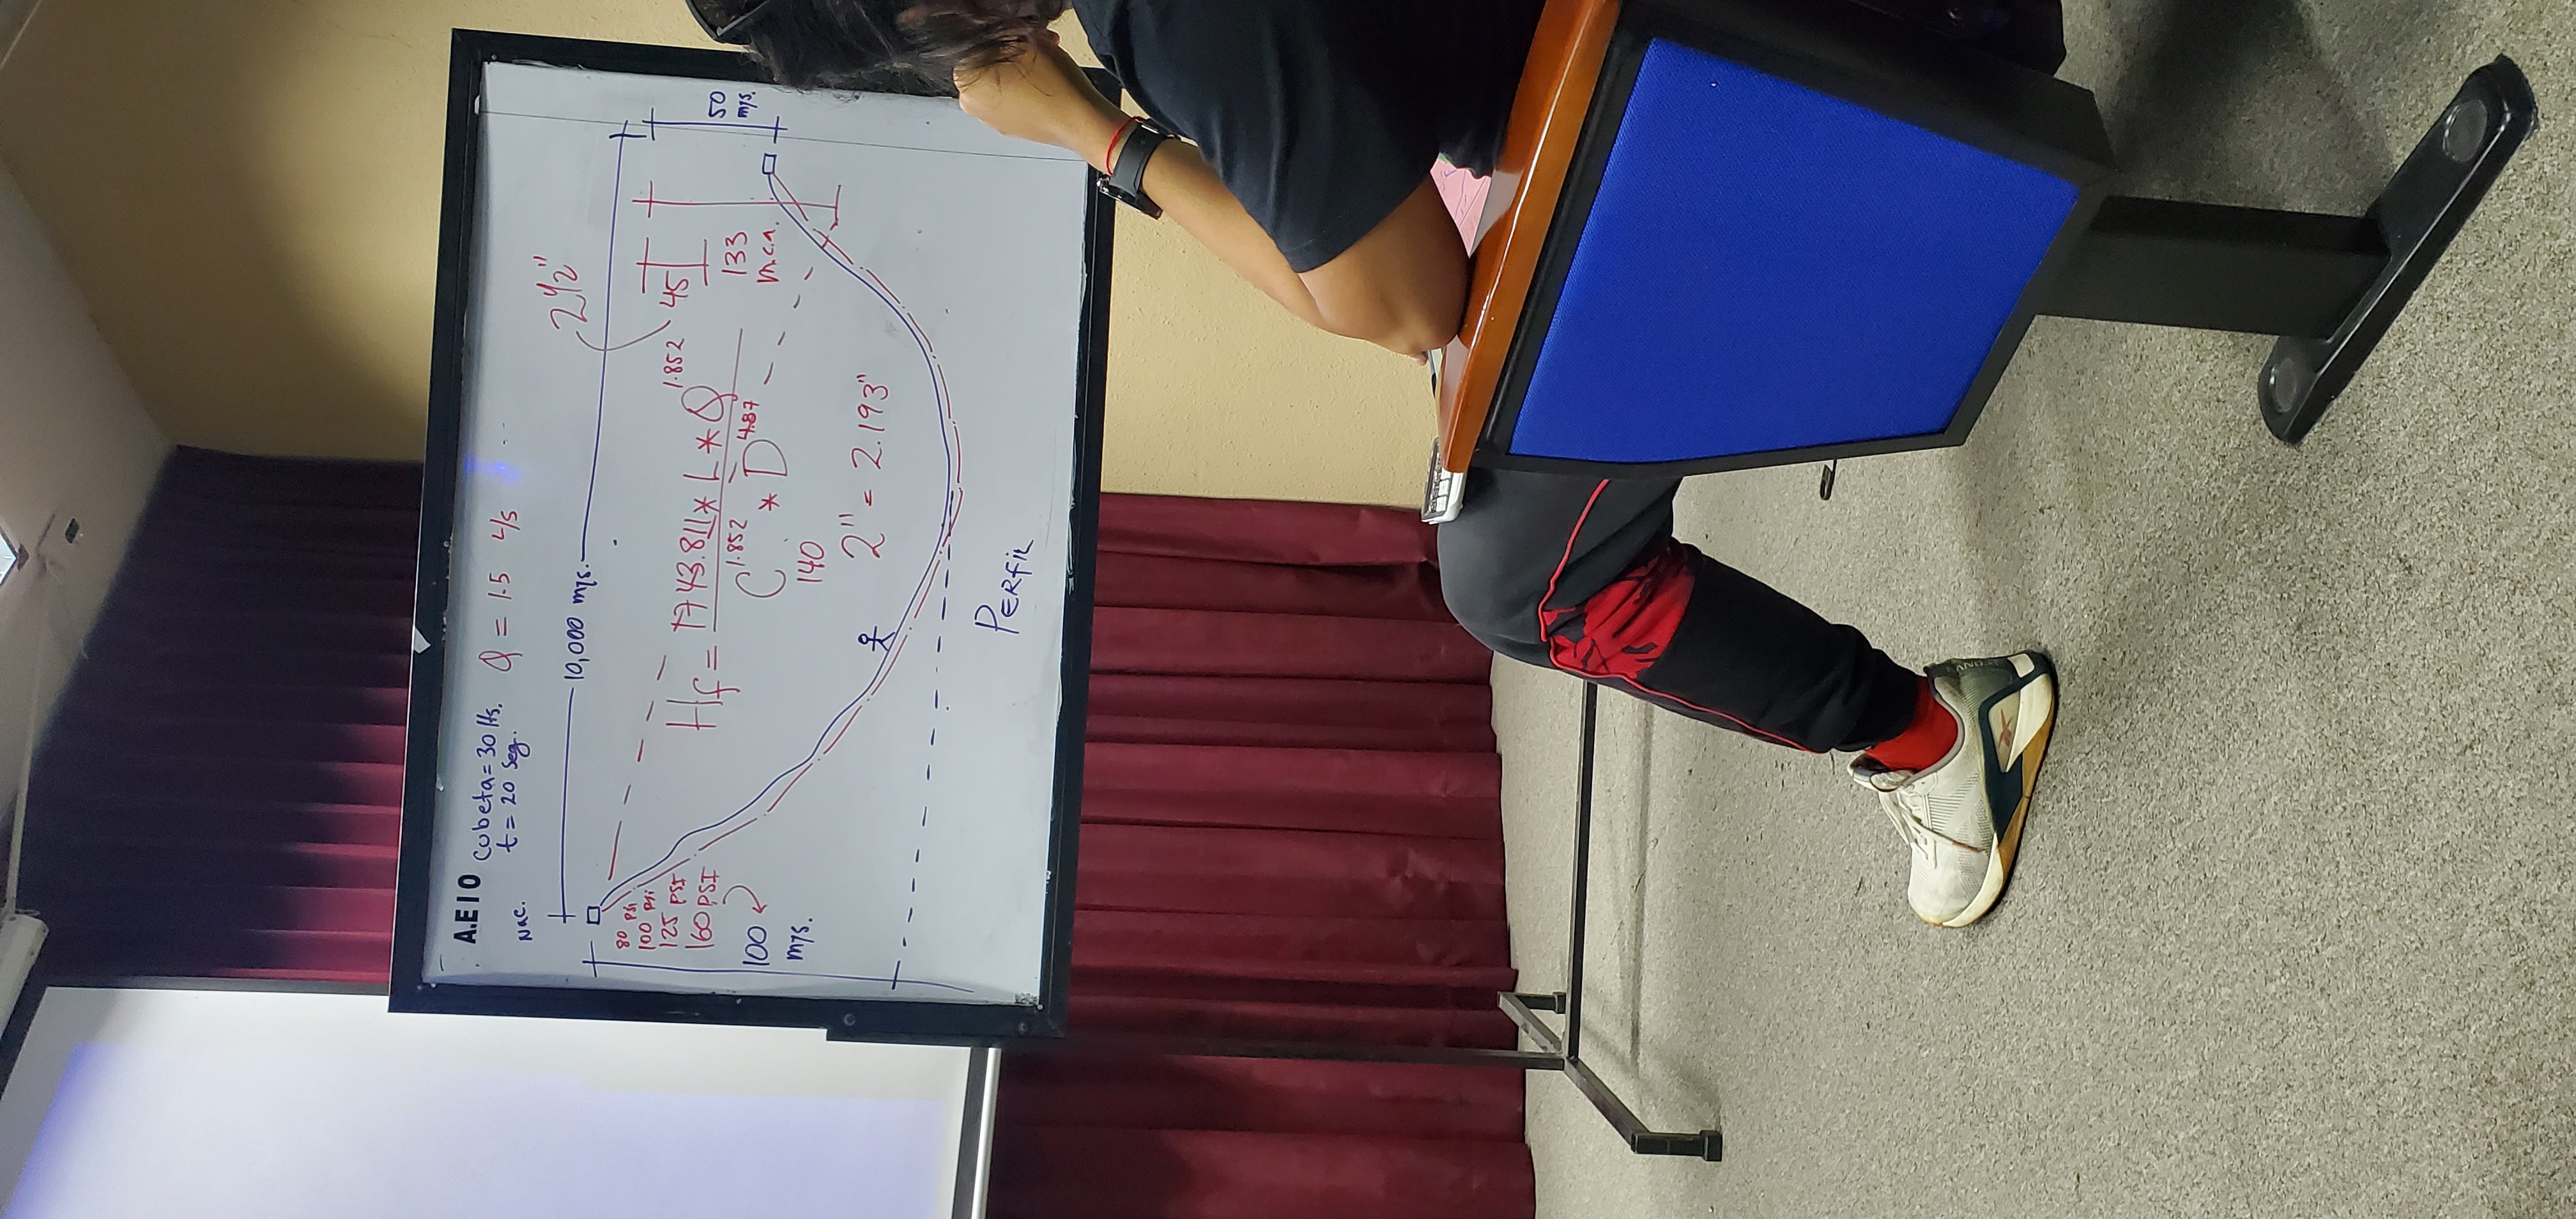 A.E I O
Cubeta = 30 lts.
t = 20 seg.
Q = 1.5 L/s
Nac.
10,000 mts.
2 1/2"
80 psi
100 psi
125 PSI
160 PSI
100
mts.
Hf = 1743.811 * L * Q^1.852
C^1.852 * D^4.87
140
2" = 2.193"
45
133
m.c.a.
50
mts.
PERFIL